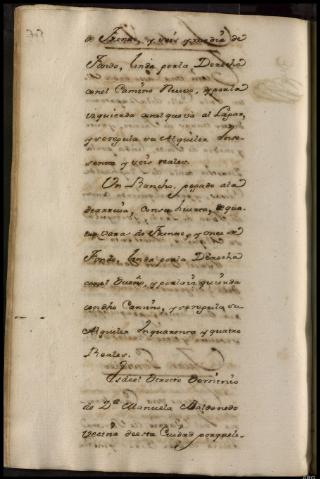 de Frente, y seis y media de
fondo, linda por la Derecha
con el Camino Nuevo, y por la
izquierda con el que va al Lugar,
y se regula su Alquiler en se-
senta y seis reales.
Un Rancho, pegado ala
de arriva, con su huerta,
varas de Frente, y once de
fondo, linda por la Derecha
con el Dueño, y por la izquierda
con dho Camino, y se regula su
Alquiler en quarenta y quatro
Reales.
Es de el Directo Dominio
de Dª Manuela Maldonado
vecina de esta Ciudad por que le